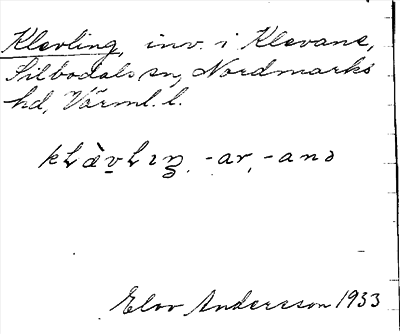 Klevling, inv. i Klevane,
Silbodals sn, Nordmarks
hd, Värml. l.
-ar, -anə
Elov Andersson 1933